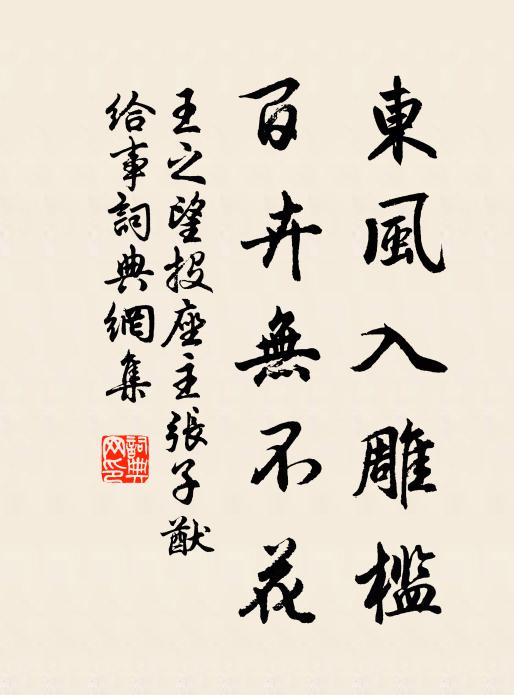 東風入雕檻
百卉無不花
王之望投座主張子猷
給事詞典網集
詞典網印